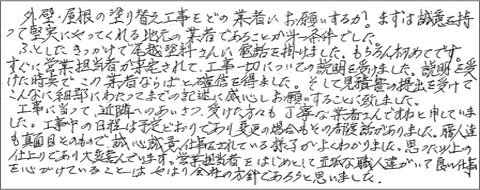 外壁・屋根の塗り替え工事をどの業者にお願いするか。まずは誠意を持
って堅実にやってくれる地元の業者であることが第一条件でした。
ふとしたきっかけで尾越塗料さんに電話を掛けました。もちろん初めてです。
すぐに営業担当者が来宅されて、工事一切についての説明を受けました。説明を受
けた時点でこの業者ならばと確信を得ました。そして見積書の提出を受けて
こんなに細部にわたってまでの記述に感心しお願いすることに致しました。
工事に当って、近隣へのあいさつ、受けた方々も丁寧な業者さんですねと申していま
した。工事中の日程は予定どおりであり変更の場合もその都度話がありました。職人達
も真面目そのもので、誠心誠意、仕事をされている様子がよくわかりました。思った以上の
仕上りであり大変喜んでいます。営業担当者をはじめとして立派な職人達がいて良い仕事
を心がけていることはやはり会社の方針であろうと思いました。